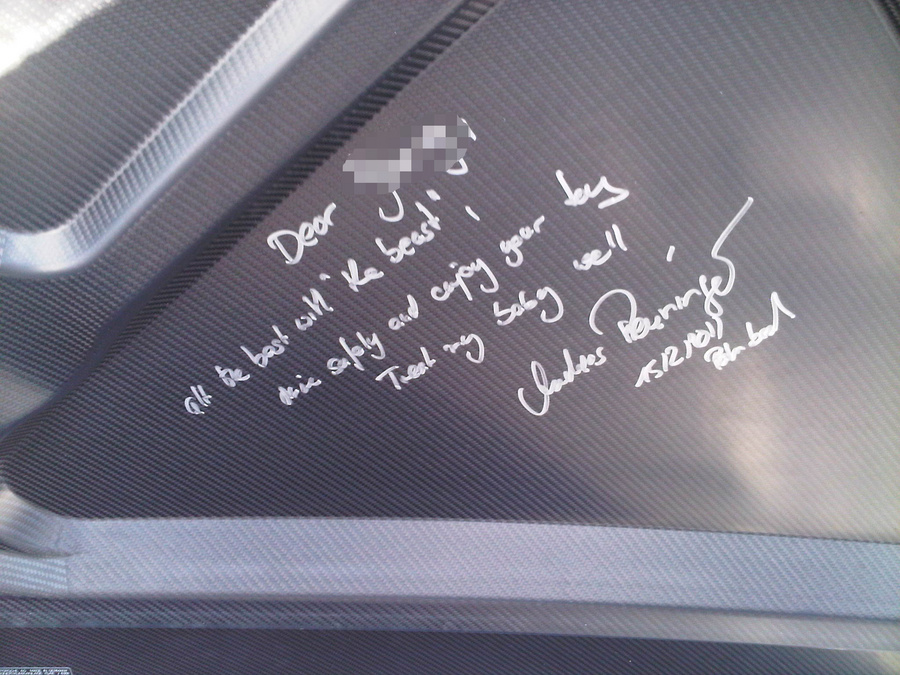 Dear
all the best with "the beast",
drive safely and enjoy your toy
Treat my baby well
Andreas Preuninger
15/2/2011